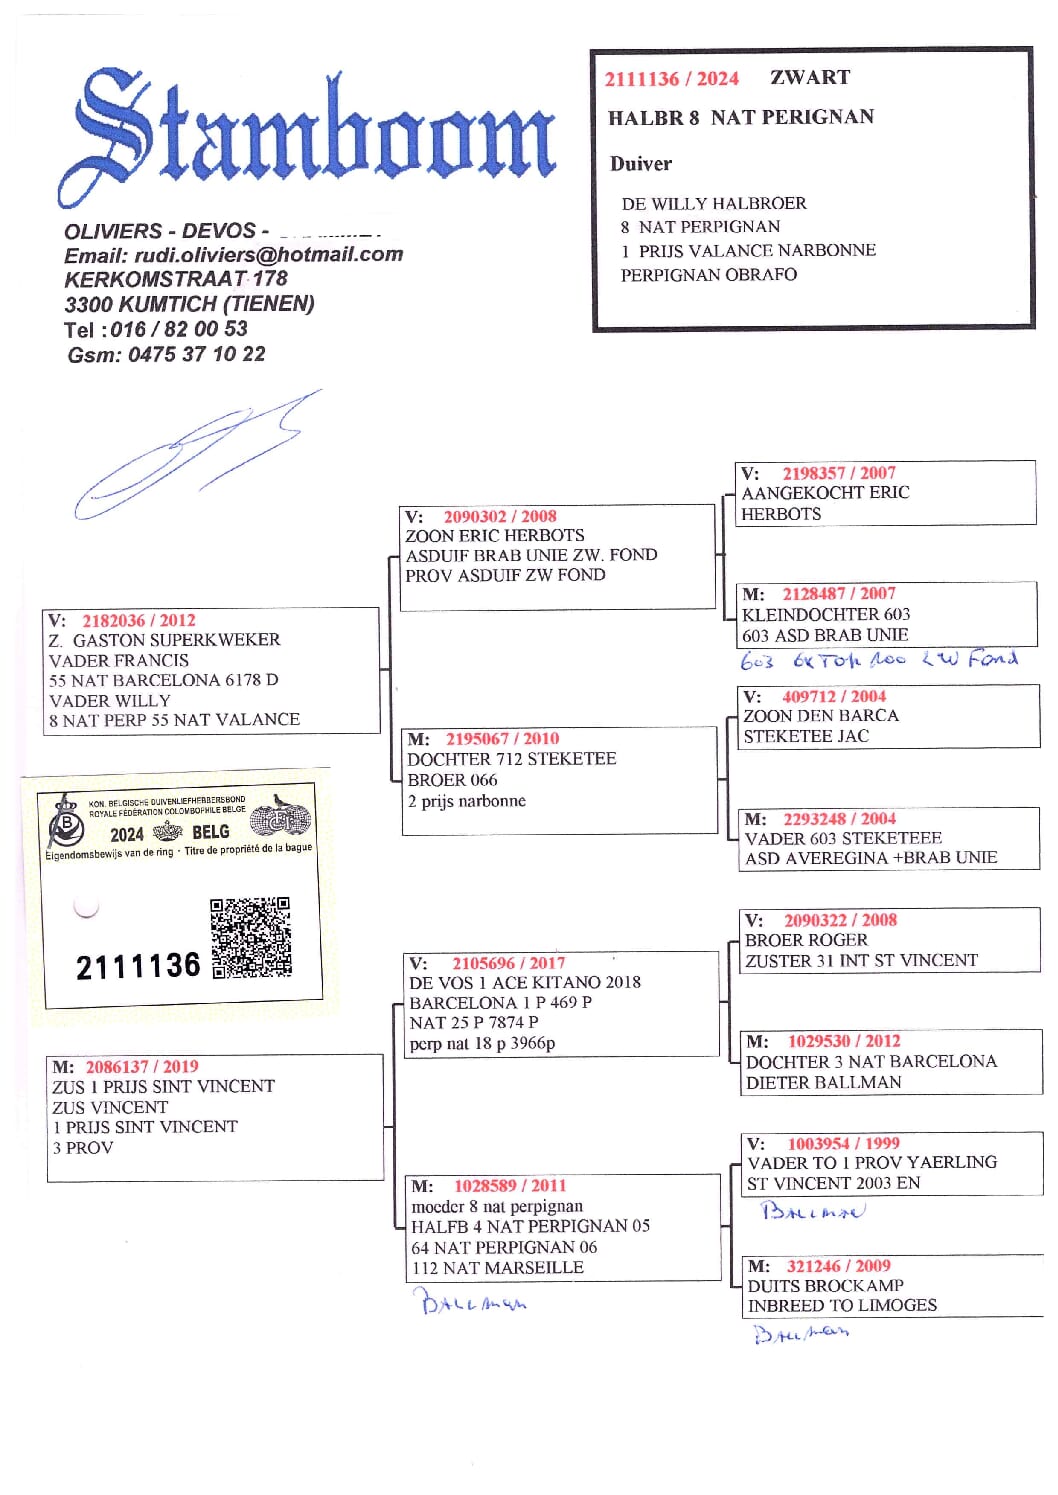 Stamboom
OLIVIERS - DEVOS -
Email: rudi.oliviers@hotmail.com
KERKOMSTRAAT 178
3300 KUMTICH (TIENEN)
Tel :016 / 82 00 53
Gsm: 0475 37 10 22
2111136 / 2024 ZWART
HALBR 8 NAT PERIGNAN
Duiver
DE WILLY HALBROER
8 NAT PERPIGNAN
1 PRIJS VALANCE NARBONNE
PERPIGNAN OBRAFO
V: 2182036 / 2012
Z. GASTON SUPERKWEKER
VADER FRANCIS
55 NAT BARCELONA 6178 D
VADER WILLY
8 NAT PERP 55 NAT VALANCE
KON. BELGISCHE DUIVENLIEFHEBBERSBOND
ROYALE FÉDÉRATION COLOMBOPHILE BELGE
2024 BELG
Eigendomsbewijs van de ring - Titre de propriété de la bague
2111136
M: 2086137 / 2019
ZUS 1 PRIJS SINT VINCENT
ZUS VINCENT
1 PRIJS SINT VINCENT
3 PROV
V: 2090302 / 2008
ZOON ERIC HERBOTS
ASDUIF BRAB UNIE ZW. FOND
PROV ASDUIF ZW FOND
M: 2195067 / 2010
DOCHTER 712 STEKETEE
BROER 066
2 prijs narbonne
V: 2105696 / 2017
DE VOS 1 ACE KITANO 2018
BARCELONA 1 P 469 P
NAT 25 P 7874 P
perp nat 18 p 3966p
M: 1028589 / 2011
moeder 8 nat perpignan
HALFB 4 NAT PERPIGNAN 05
64 NAT PERPIGNAN 06
112 NAT MARSEILLE
BALLMAN
V: 2198357 / 2007
AANGEKOCHT ERIC
HERBOTS
M: 2128487 / 2007
KLEINDOCHTER 603
603 ASD BRAB UNIE
603 6x TOP 100 ZW Fond
V: 409712 / 2004
ZOON DEN BARCA
STEKETEE JAC
M: 2293248 / 2004
VADER 603 STEKETEEE
ASD AVEREGINA +BRAB UNIE
V: 2090322 / 2008
BROER ROGER
ZUSTER 31 INT ST VINCENT
M: 1029530 / 2012
DOCHTER 3 NAT BARCELONA
DIETER BALLMAN
V: 1003954 / 1999
VADER TO 1 PROV YAERLING
ST VINCENT 2003 EN
BALLMAN
M: 321246 / 2009
DUITS BROCKAMP
INBREED TO LIMOGES
BALLMAN